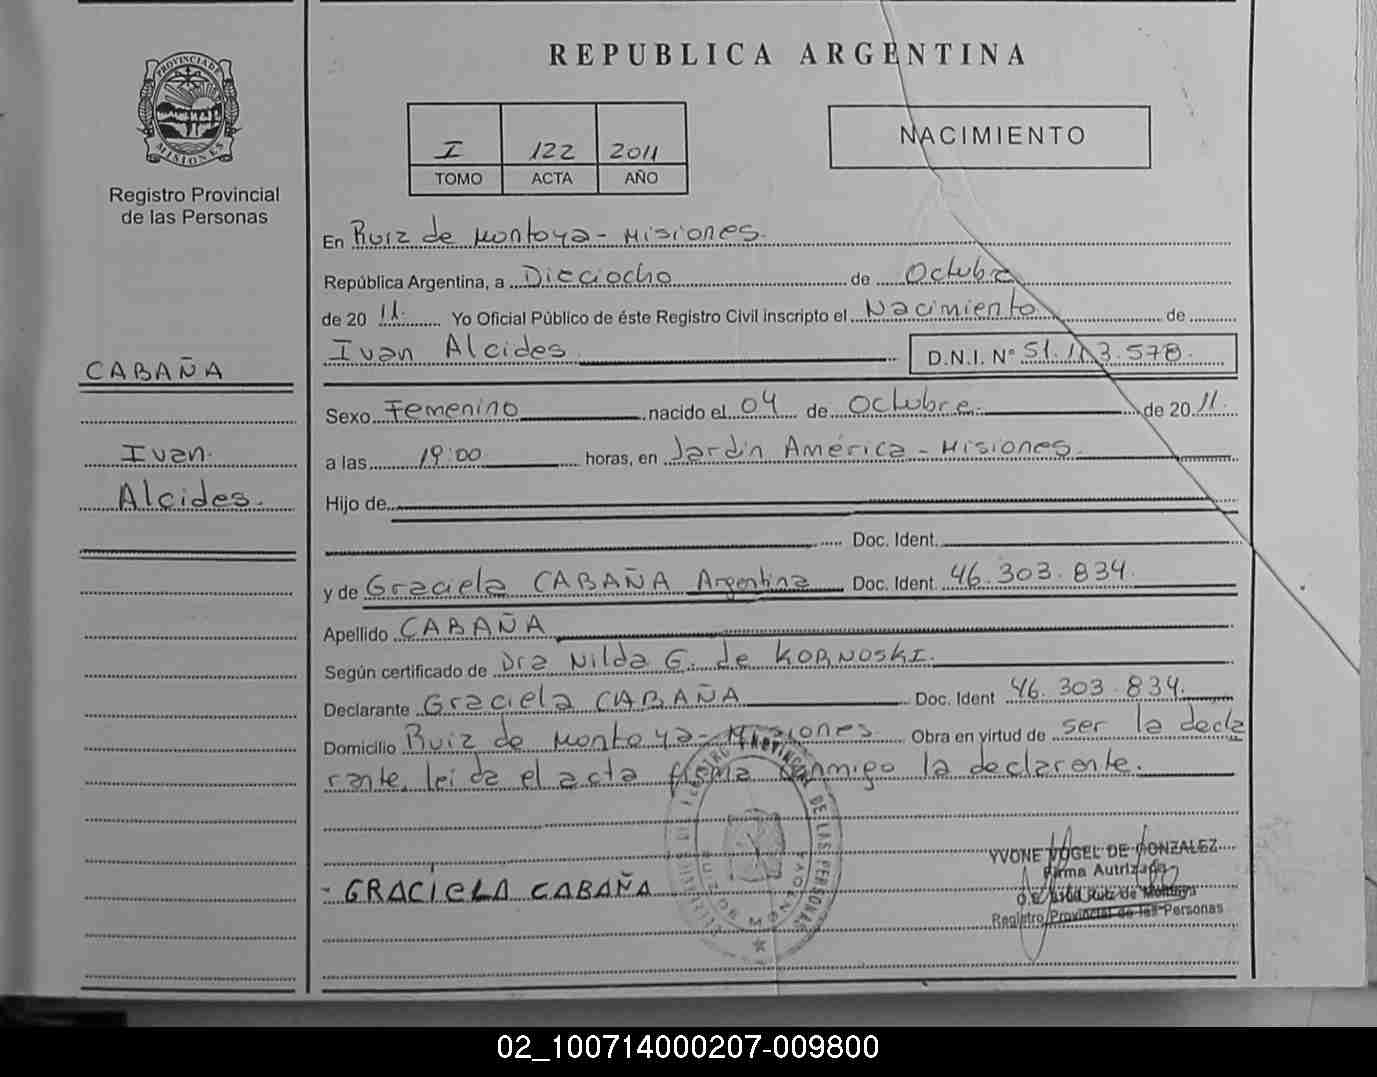 REPUBLICA ARGENTINA
PROVINCIA DE
MISIONES
Registro Provincial
de las Personas
I 122 2011
TOMO ACTA AÑO
NACIMIENTO
En Ruiz de Montoya - Misiones.
República Argentina, a Dieciocho de Octubre
de 20 11. Yo Oficial Público de éste Registro Civil inscripto el Nacimiento de
Ivan Alcides D.N.I. N° 51.113.578.
CABAÑA
Ivan
Alcides.
Sexo Femenino nacido el 04 de Octubre de 20 11.
a las 19:00 horas, en Jardín América - Misiones.
Hijo de
Doc. Ident.
y de Graciela CABAÑA Argentina Doc. Ident. 46.303.834.
Apellido CABAÑA
Según certificado de Dra Nilda G. de KORNOSKI.
Declarante Graciela CABAÑA Doc. Ident 46.303.834.
Domicilio Ruiz de Montoya - Misiones Obra en virtud de ser la decla
rante, leida el acta firma conmigo la declarente.
REGISTRO PROVINCIAL DE LAS PERSONAS
RUIZ DE MONTOYA
- GRACIELA CABAÑA
YVONE VOGEL DE GONZALEZ
Firma Autrizada
Ruiz de Montoya
Registro Provincial de las Personas
02_100714000207-009800